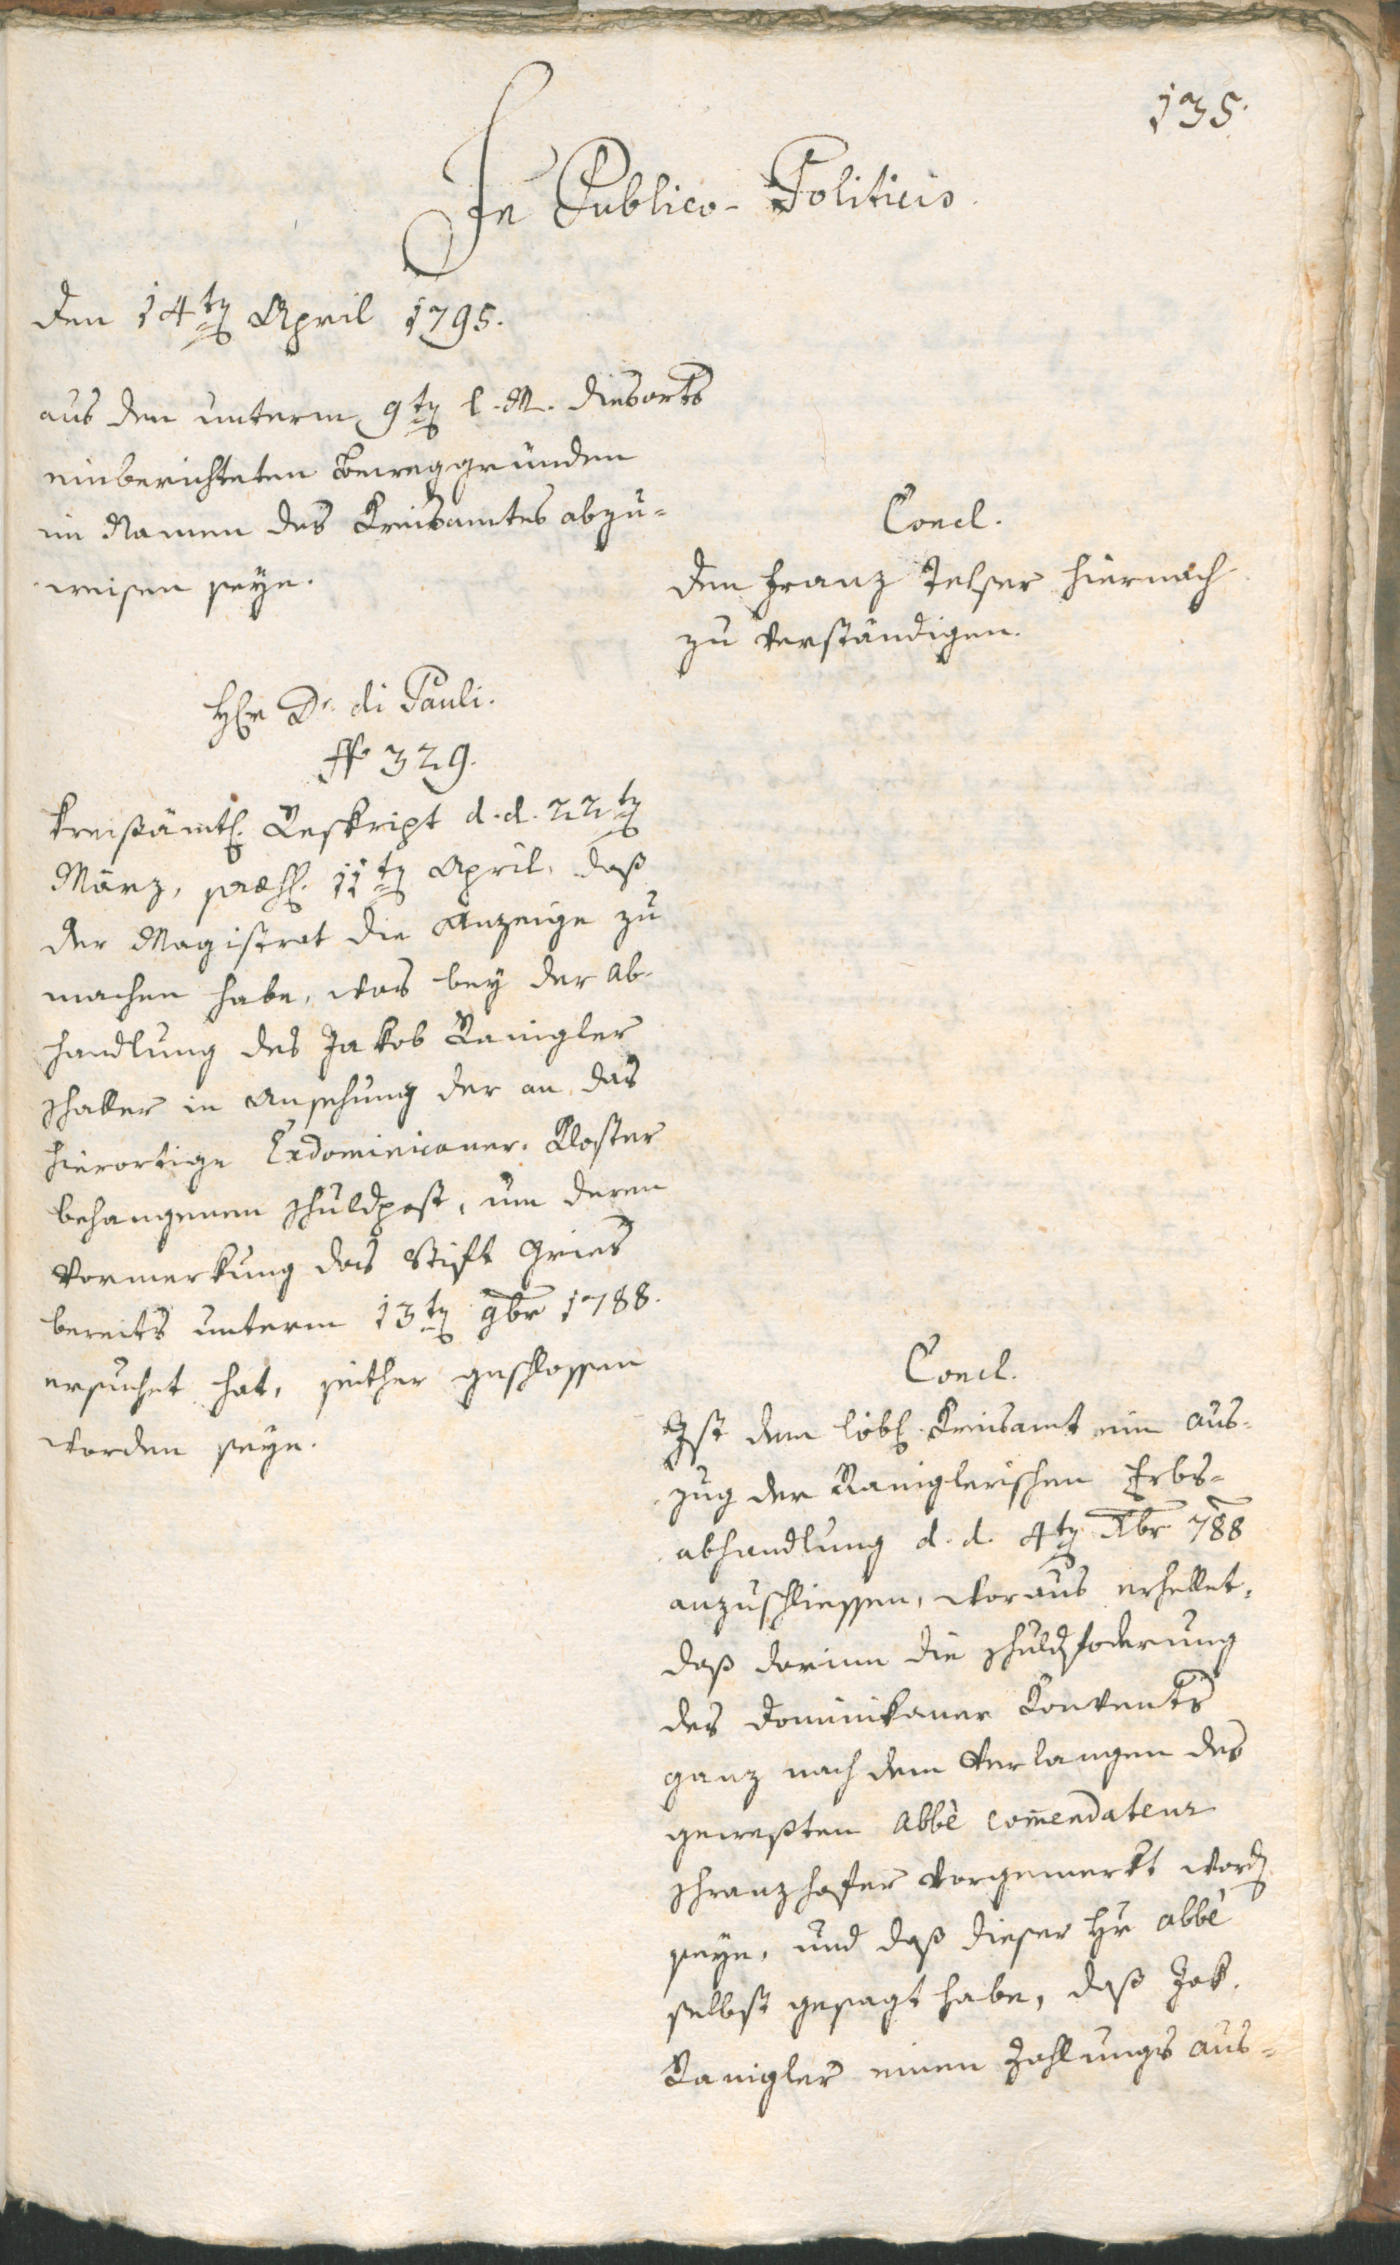 135.
In Publico-Politicis.
den 14ten April 1795.
aus den unterm 9ten l. M. diesorts
einberichteten Beweggründen
im Namen des Kreisamtes abzu=
weisen seye.
Concl.
Dem Franz Telser hiernach
zu verständigen.
Hr. Dr. di Pauli.
N 329.
Kreisämtl. Reskript d. d. 22ten
März, 11ten April, daß
der Magistrat die Anzeige zu
machen habe, was bey der Ab-
handlung des Jakob Ranigler
Thaller in Ansehung der an das
hierortige Exdominicaner-Kloster
behangenen Schuldpost, um deren
Vormerkung das Stift Gries
bereits unterm 13ten 9br 1788.
ersuchet hat, seither geschlossen
worden seye.
Concl.
Ist dem löbl. Kreisamt ein Aus-
zug der Raniglerischen Erbs-
abhandlung d. d. 4ten Xbr 788
anzuschliessen, woraus erhellet,
daß darinn die Schuldfoderung
des Dominikaner Konvents
ganz nach dem Verlangen des
geweßten Abbé Comendateur
Schranzhofer vorgemerkt worden
seye, und daß dieser Hr Abbé
selbst gesagt habe, daß Jak.
Ranigler einen Zahlungs aus=